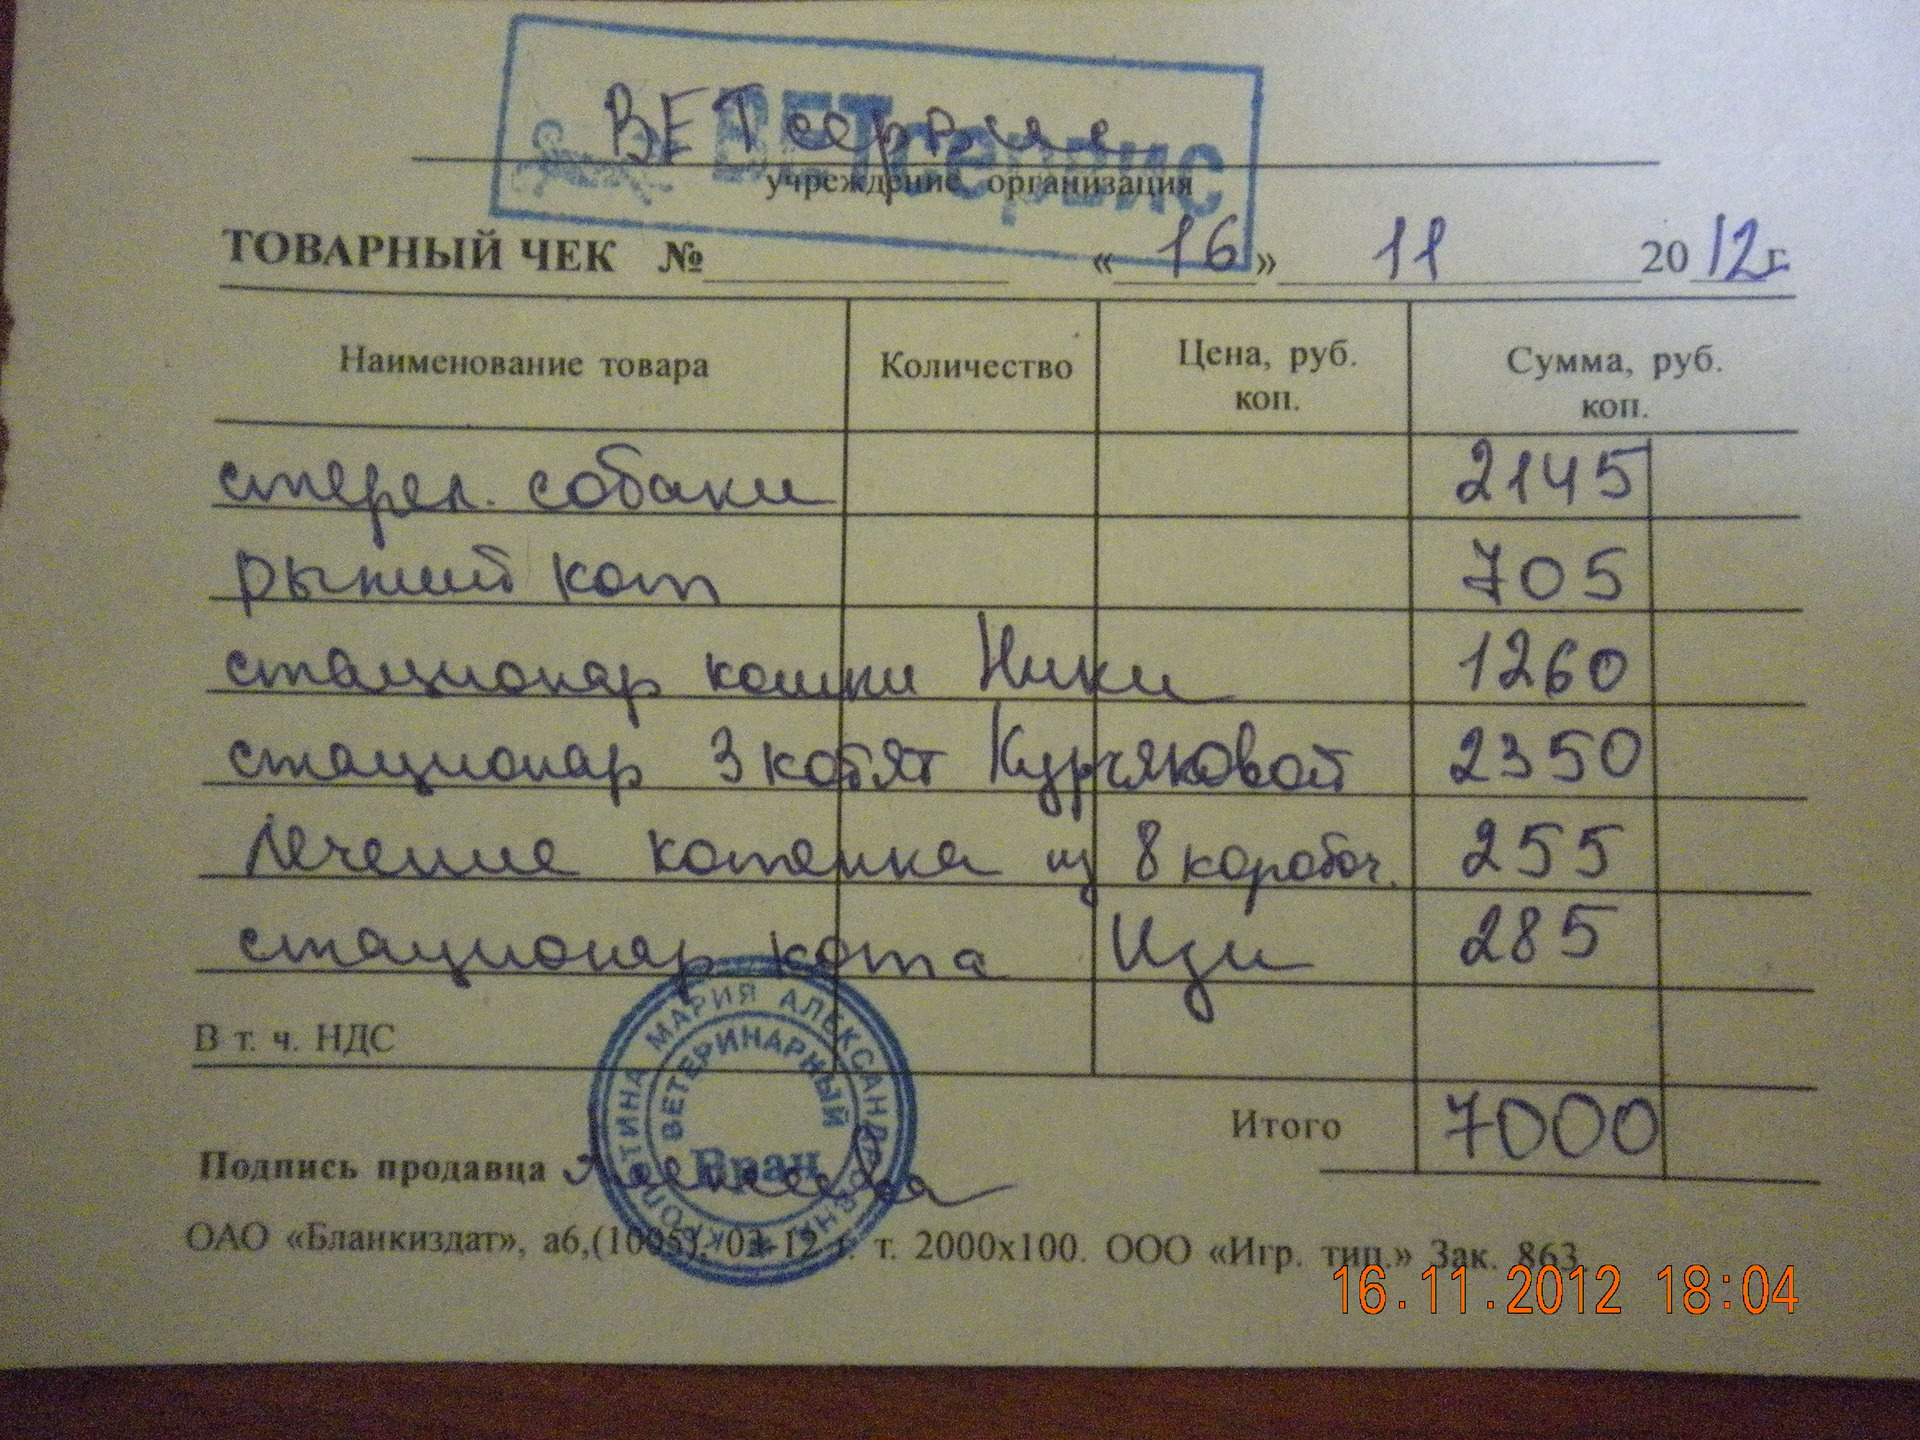 ВЕТсервис
ВЕТсервис
учреждение, организация
ТОВАРНЫЙ ЧЕК № « 16 » 11 20 12 г.
Наименование товара Количество Цена, руб. коп. Сумма, руб. коп.
стерел. собаки 2145
рыжий кот 705
стационар кошки Ники 1260
стационар 3 котят Курчяковой 2350
Лечение котенка из 8 коробоч. 255
стационар кота Изи 285
В т. ч. НДС
МАРИЯ АЛЕКСАНДРОВНА
ВЕТЕРИНАРНЫЙ
Врач
Итого 7000
Подпись продавца
ОАО «Бланкиздат», а6,(1005). 03 12 г. т. 2000х100. ООО «Игр. тип.» Зак. 863.
16.11.2012 18:04